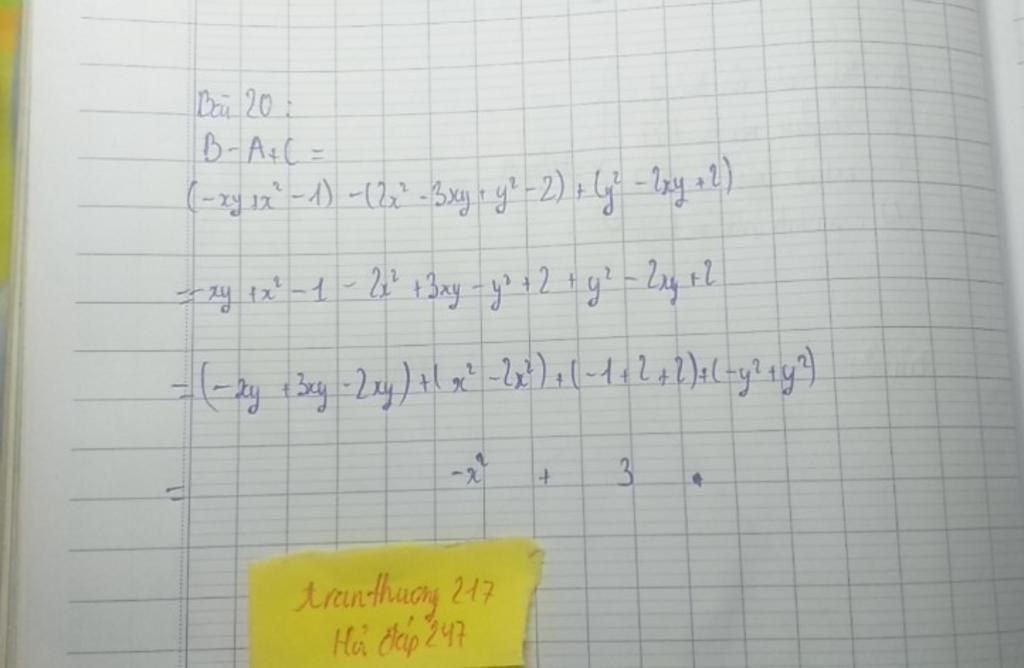 Bài 20 :
B - A + C =
(-xy + x² - 1) - (2x² - 3xy + y² - 2) + (y² - 2xy + 2)
= -xy + x² - 1 - 2x² + 3xy - y² + 2 + y² - 2xy + 2
= (-xy + 3xy - 2xy) + (x² - 2x²) + (-1 + 2 + 2) + (-y² + y²)
= -x² + 3 .
tranthuong 217
Hỏi đáp 247